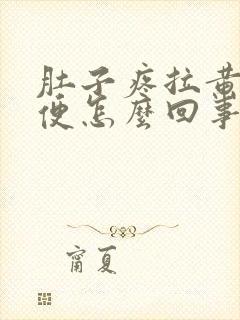 肚子疼拉黄
便怎麼回事
甯夏